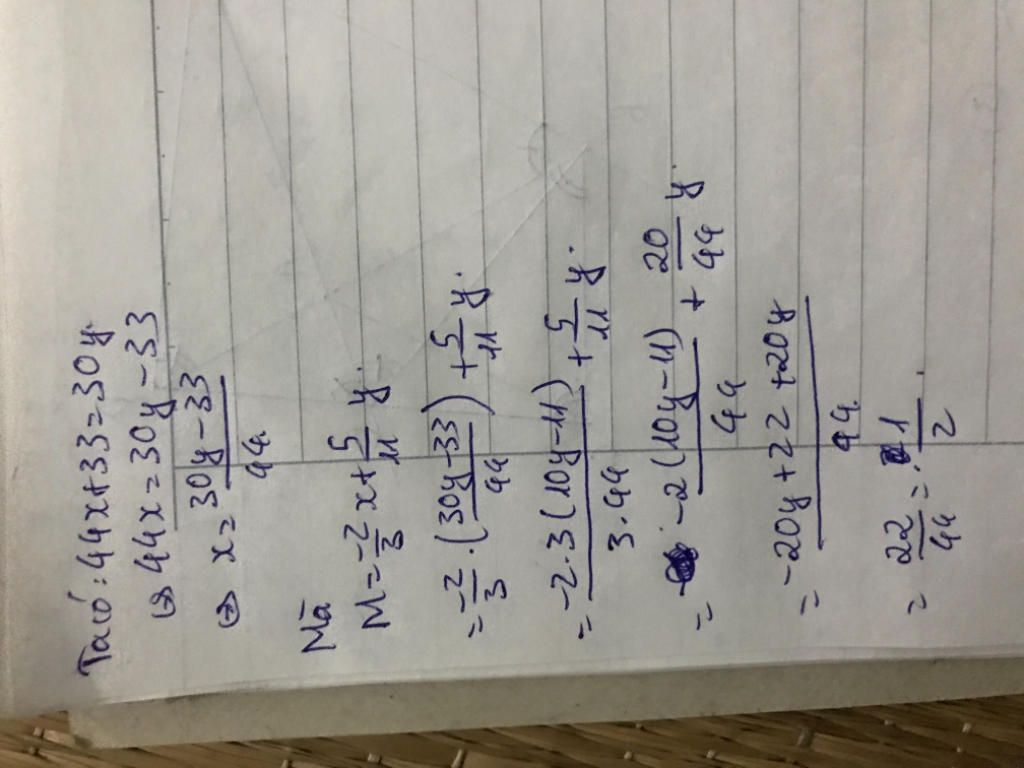 Ta có: 44x+33=30y.
⇔ 44x = 30y - 33
⇔ x = (30y - 33)/44.
Mà
M = -2/3 x + 5/11 y.
= -2/3 . (30y-33)/44) + 5/11 y.
= -2.3(10y-11)/3.44 + 5/11 y.
= -2(10y-11)/44 + 20/44 y
= -20y+22+20y/44.
= 22/44 = 1/2.